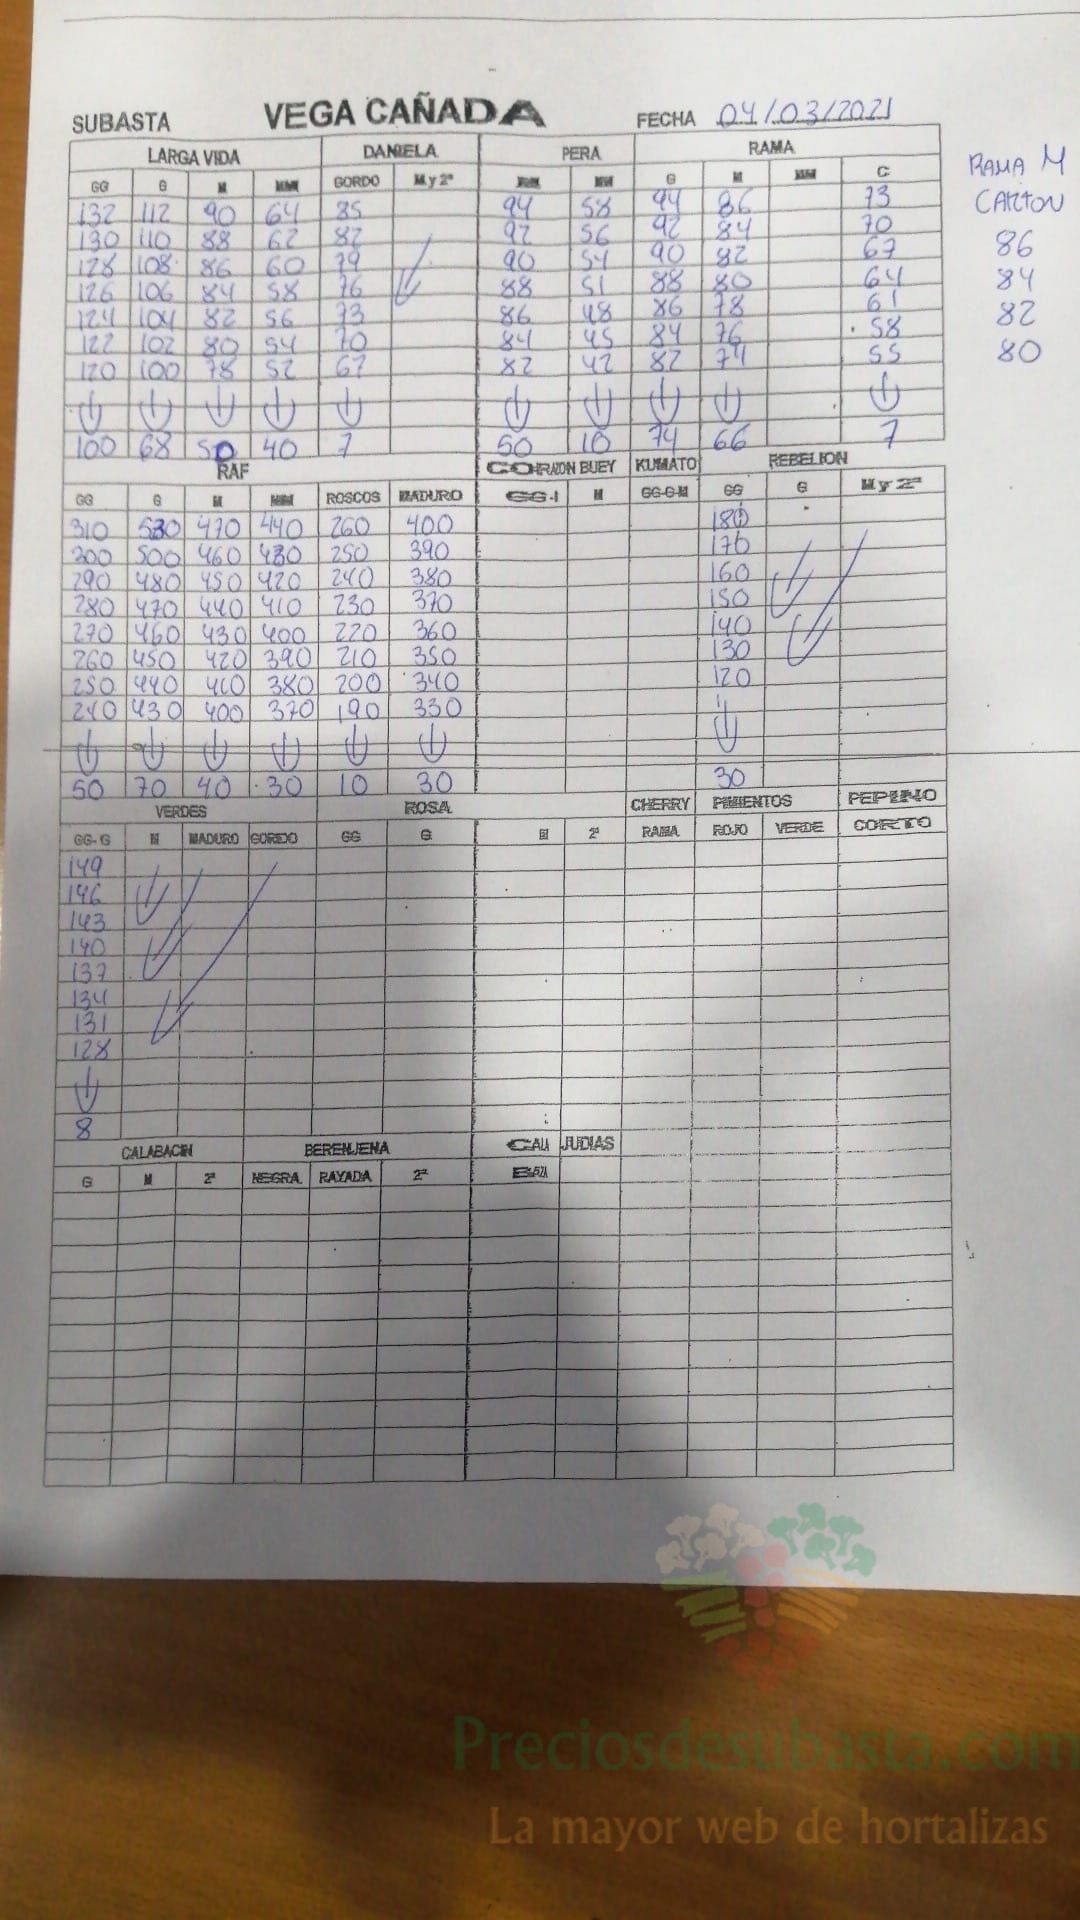 SUBASTA VEGA CAÑADA FECHA 04/03/2021
LARGA VIDA DANIELA PERA RAMA
GG G M MM GORDO M y 2ª MM G M MM C RAMA M
132 112 90 64 85 94 58 94 86 73 CARTON
130 110 88 62 82 92 56 92 84 70 86
128 108 86 60 79 90 54 90 82 67 84
126 106 84 58 76 88 51 88 80 64 82
124 104 82 56 73 86 48 86 78 61 80
122 102 80 54 70 84 45 84 76 58
120 100 78 52 67 82 42 82 74 55
100 68 50 40 7 50 10 74 66 7
RAF CORAZON BUEY KUMATO REBELION
GG G M MM ROSCOS MADURO M GG-G-M GG G M y 2ª
310 530 470 440 260 400 180
300 500 460 430 250 390 170
290 480 450 420 240 380 160
280 470 440 410 230 370 150
270 460 430 400 220 360 140
260 450 420 390 210 350 130
250 440 410 380 200 340 120
240 430 400 370 190 330
50 70 40 30 10 30 30
VERDES ROSA CHERRY PIMIENTOS PEPINO
GG-G M MADURO GORDO GG G M 2ª RAMA ROJO VERDE CORTO
149
146
143
140
137
134
131
128
8
CALABACIN BERENJENA JUDIAS
G M 2ª NEGRA RAYADA 2ª
Preciosdesubasta.com
La mayor web de hortalizas